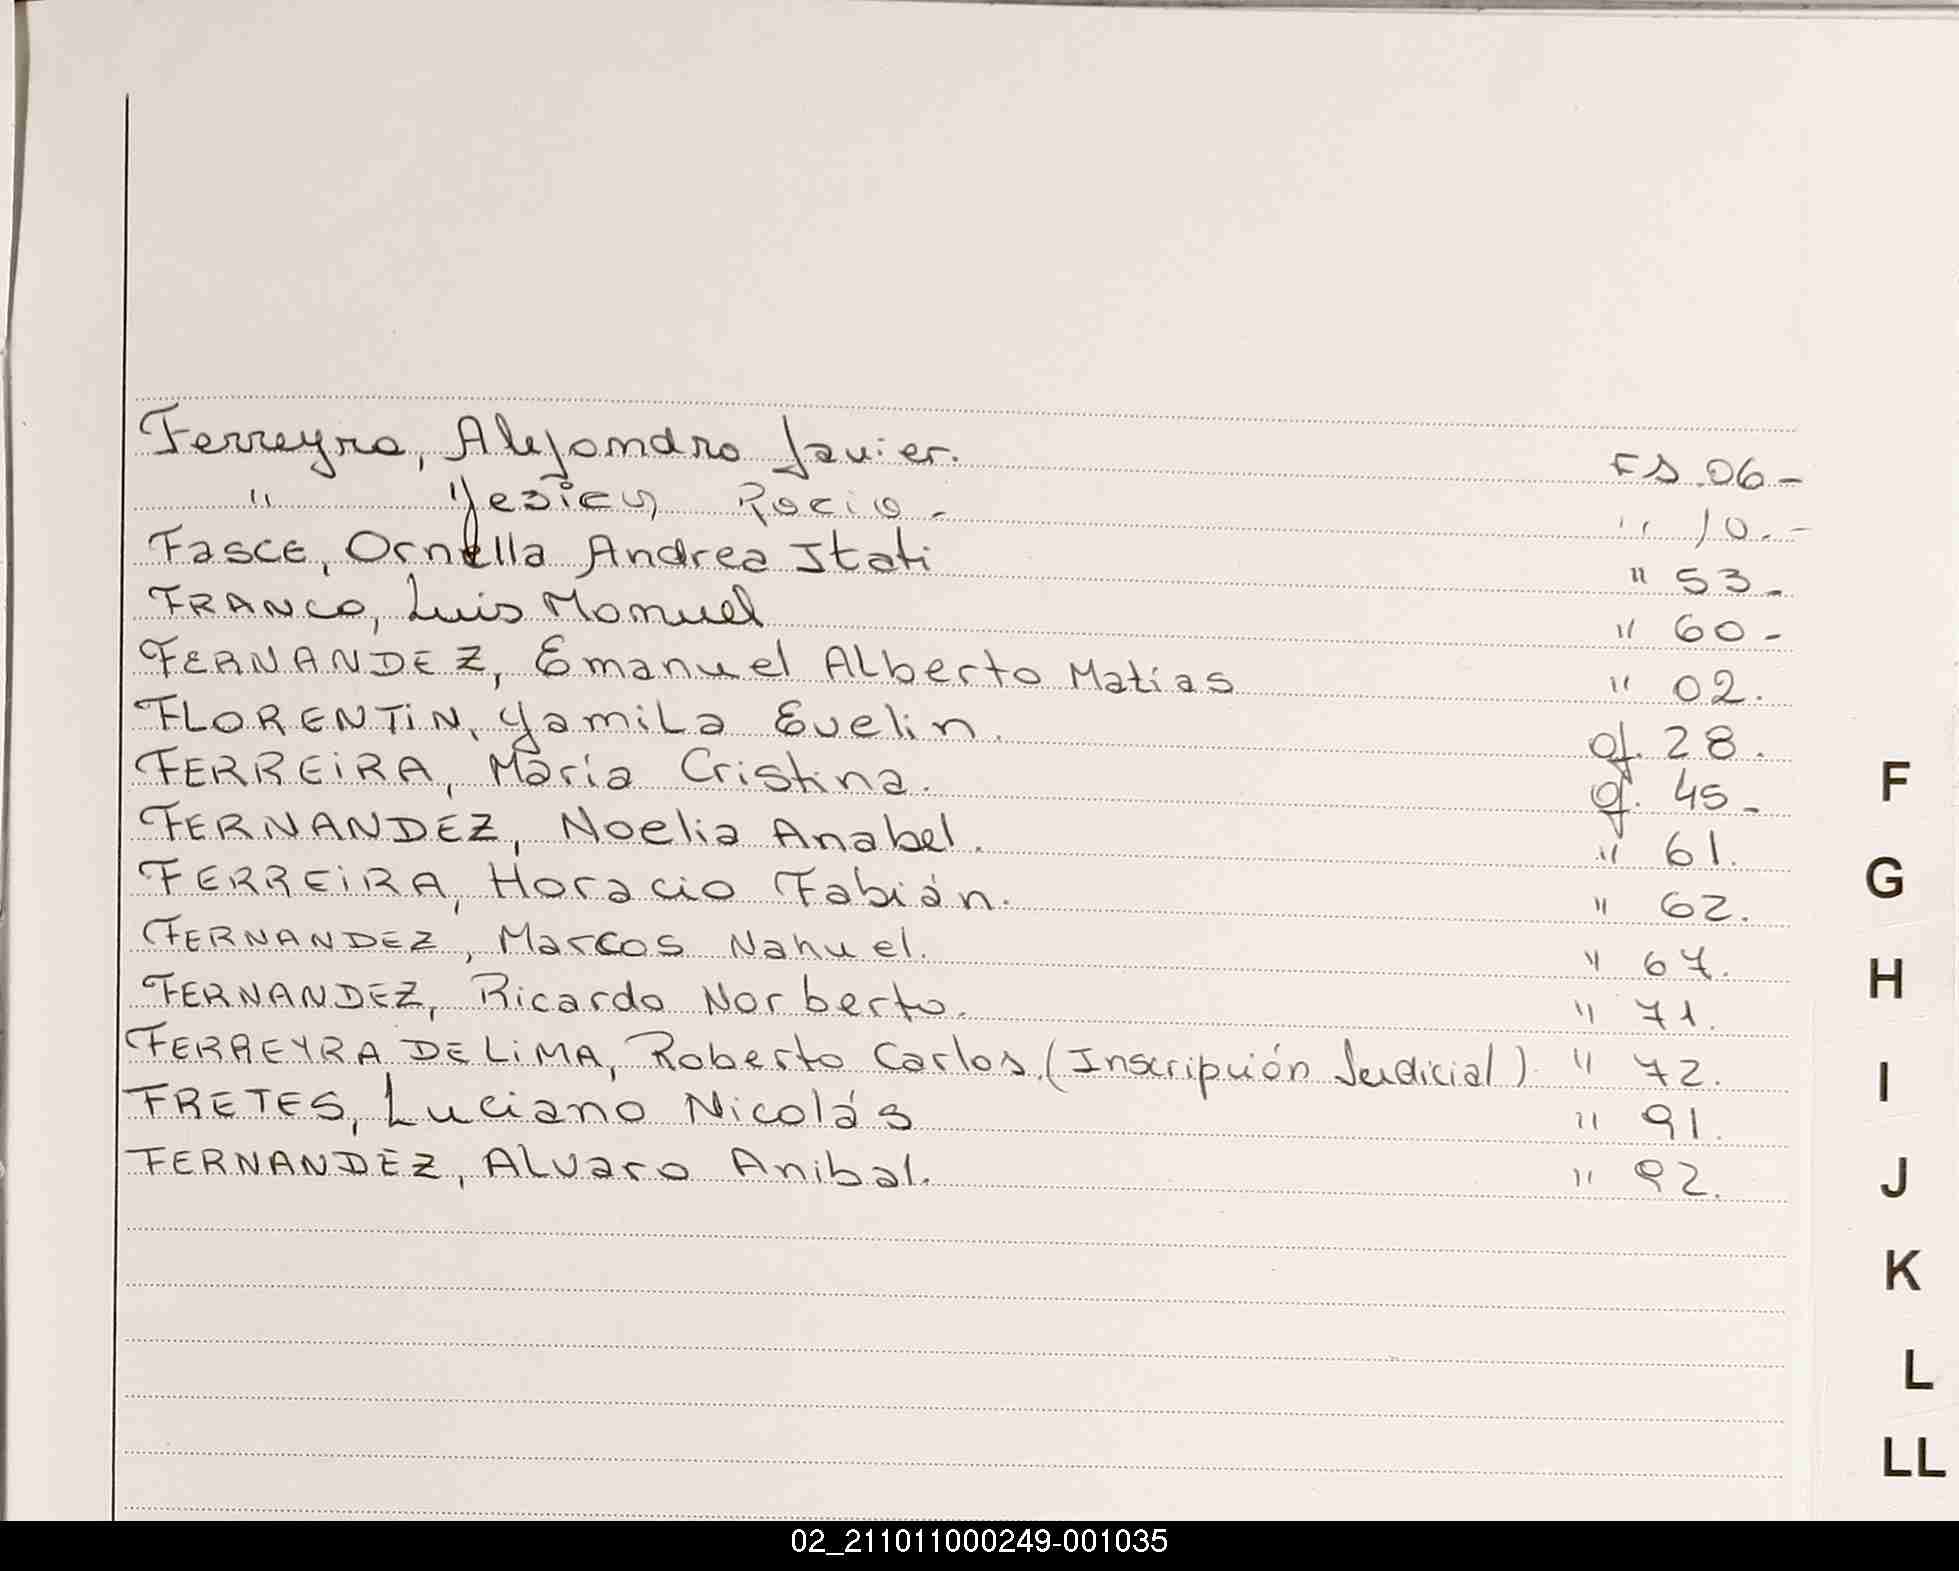 Ferreyra, Alejandro Javier. FS. 06-
" Yesica Rocio - " 10.-
Fasce, Ornella Andrea Itati " 53-
FRANCO, Luis Manuel " 60-
FERNANDEZ, Emanuel Alberto Matías " 02.
FLORENTIN, Yamila Evelin. of. 28.
FERREIRA, María Cristina. of. 45-
FERNANDEZ, Noelia Anabel. " 61.
FERREIRA, Horacio Fabián. " 62.
FERNANDEZ, Marcos Nahuel. " 67.
FERNANDEZ, Ricardo Norberto. " 71.
FERREYRA DE LIMA, Roberto Carlos (Inscripción Judicial) " 72.
FRETES, Luciano Nicolás " 91.
FERNANDEZ, Alvaro Anibal. " 92.
F
G
H
I
J
K
L
LL
02_211011000249-001035